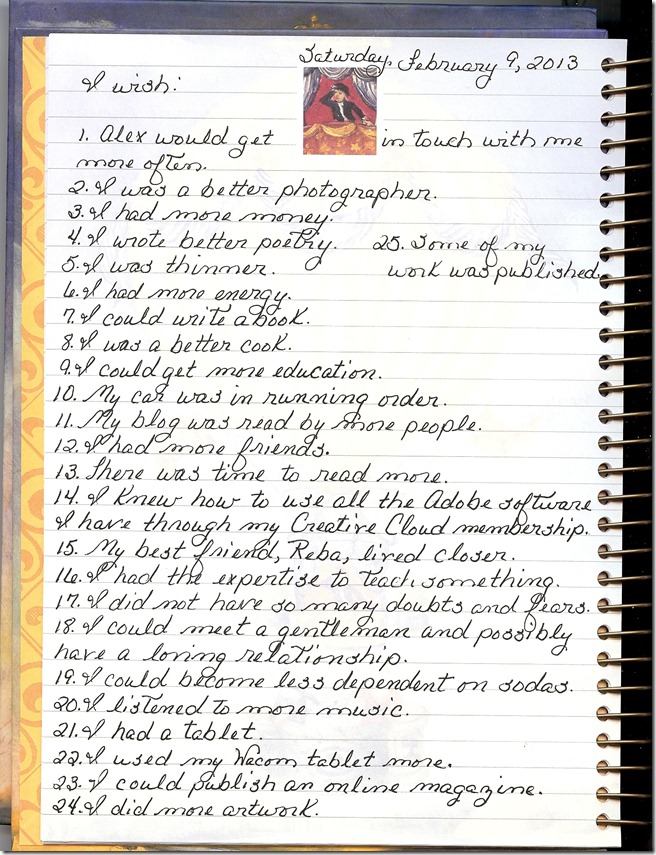 Saturday, February 9, 2013
I wish:
1. Alex would get in touch with me
more often.
2. I was a better photographer.
3. I had more money.
4. I wrote better poetry.
5. I was thinner.
6. I had more energy.
7. I could write a book.
8. I was a better cook.
9. I could get more education.
10. My car was in running order.
11. My blog was read by more people.
12. I had more friends.
13. There was time to read more.
14. I knew how to use all the Adobe software
I have through my Creative Cloud membership.
15. My best friend, Reba, lived closer.
16. I had the expertise to teach something.
17. I did not have so many doubts and fears.
18. I could meet a gentleman and possibly
have a loving relationship.
19. I could become less dependent on sodas.
20. I listened to more music.
21. I had a tablet.
22. I used my Wacom tablet more.
23. I could publish an online magazine.
24. I did more artwork.
25. Some of my
work was published.